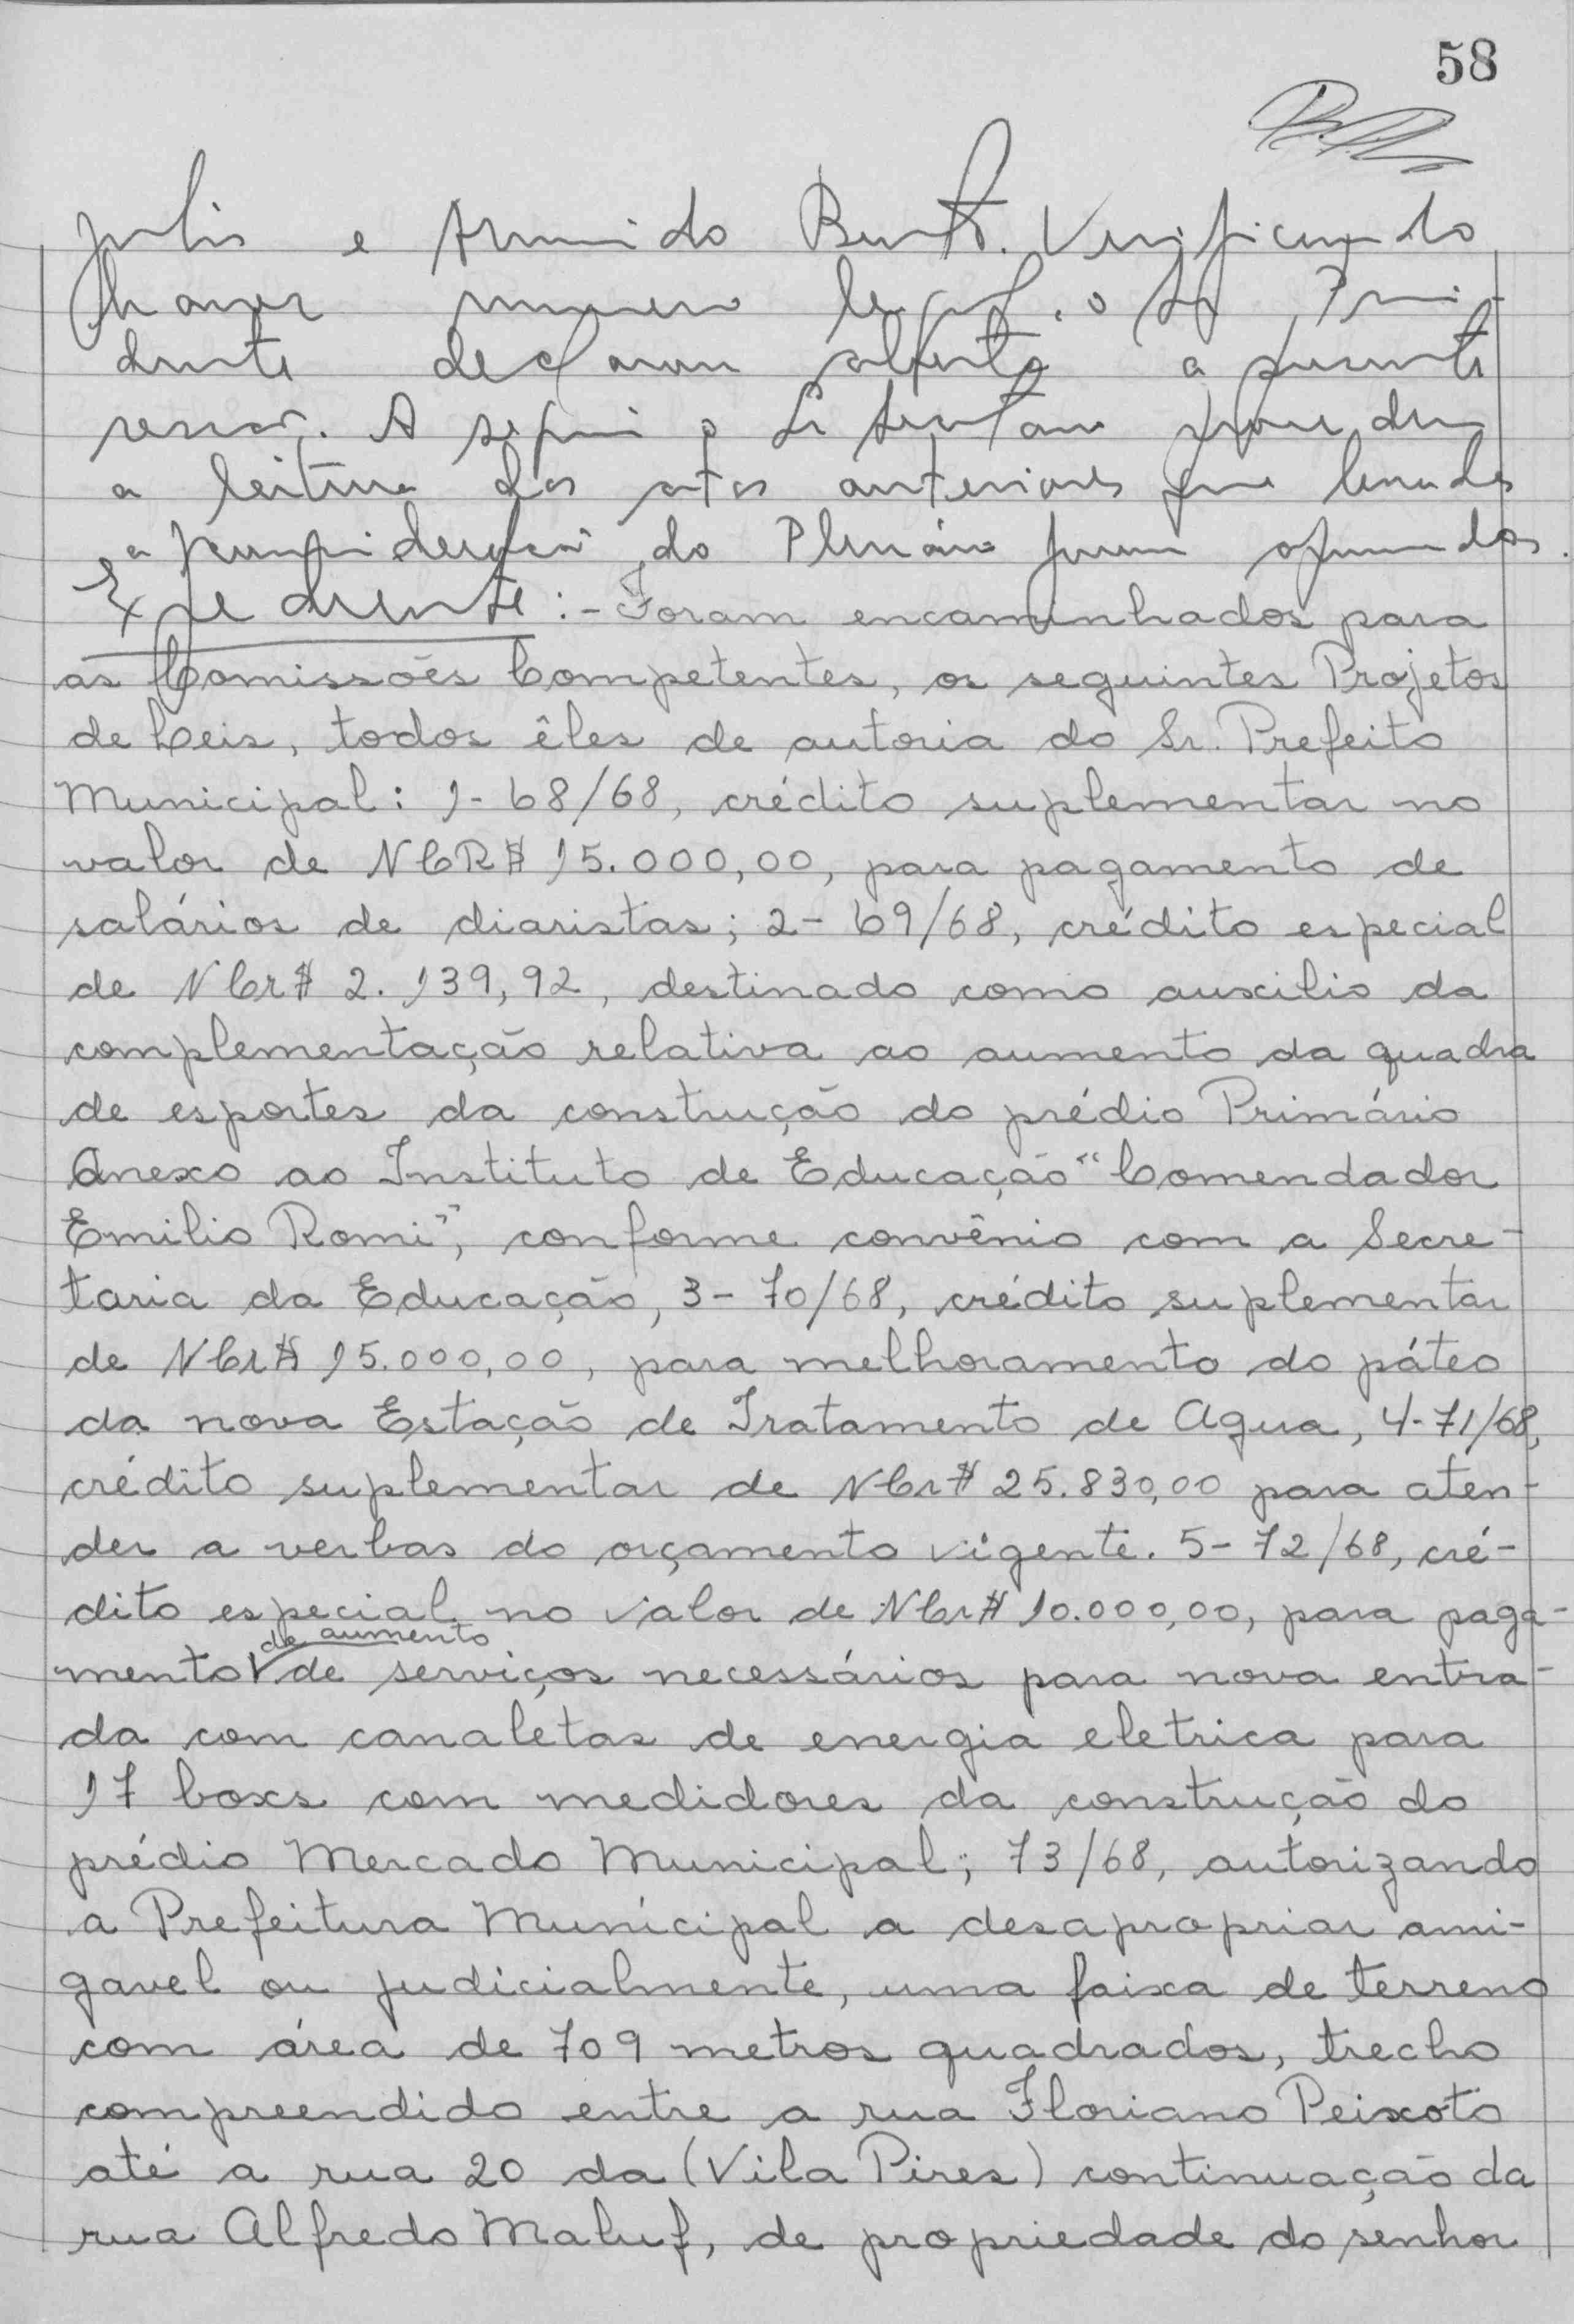 58
e Armindo Bento. Verificando
haver numero legal, o Sr Presi-
dente declarou aberta a presente
sessão. A seguir o Sr Secretario procedeu
a leitura das atas anteriores que levadas
a consideração do Plenário foram aprovadas.
Expediente:- Foram encaminhados para
as Comissões Competentes, os seguintes Projetos
de Leis, todos êles de autoria do Sr. Prefeito
Municipal: 1- 68/68, crédito suplementar no
valor de NCR$ 15.000,00, para pagamento de
salários de diaristas; 2- 69/68, crédito especial
de NCr$ 2.139,92, destinado como auxilio da
complementação relativa ao aumento da quadra
de esportes da construção do prédio Primário
Anexo ao Instituto de Educação "Comendador
Emilio Romi", conforme convênio com a Secre-
taria da Educação, 3- 70/68, crédito suplementar
de NCr$ 15.000,00, para melhoramento do páteo
da nova Estação de Tratamento de Agua, 4-71/68,
crédito suplementar de NCr$ 25.830,00 para aten-
der a verbas do orçamento vigente. 5- 72/68, cré-
dito especial no valor de NCr$ 10.000,00, para paga-
de aumento
mento de serviços necessários para nova entra-
da com canaletas de energia eletrica para
17 boxs com medidores da construção do
prédio Mercado Municipal; 73/68, autorizando
a Prefeitura Municipal a desapropriar ami-
gavel ou judicialmente, uma faixa de terreno
com área de 709 metros quadrados, trecho
compreendido entre a rua Floriano Peixoto
até a rua 20 da (Vila Pires) continuação da
rua Alfredo Maluf, de propriedade do senhor